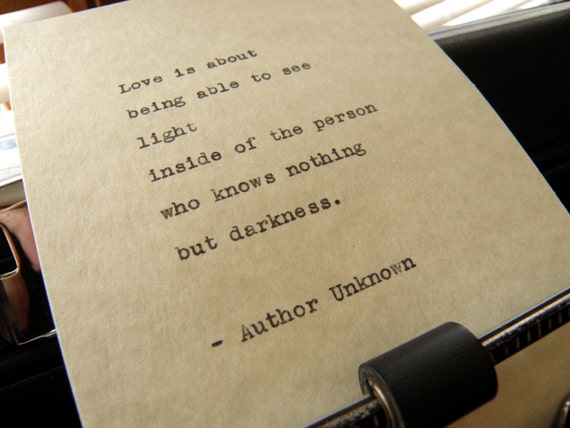 Love is about
being able to see
light
inside of the person
who knows nothing
but darkness.
- Author Unknown